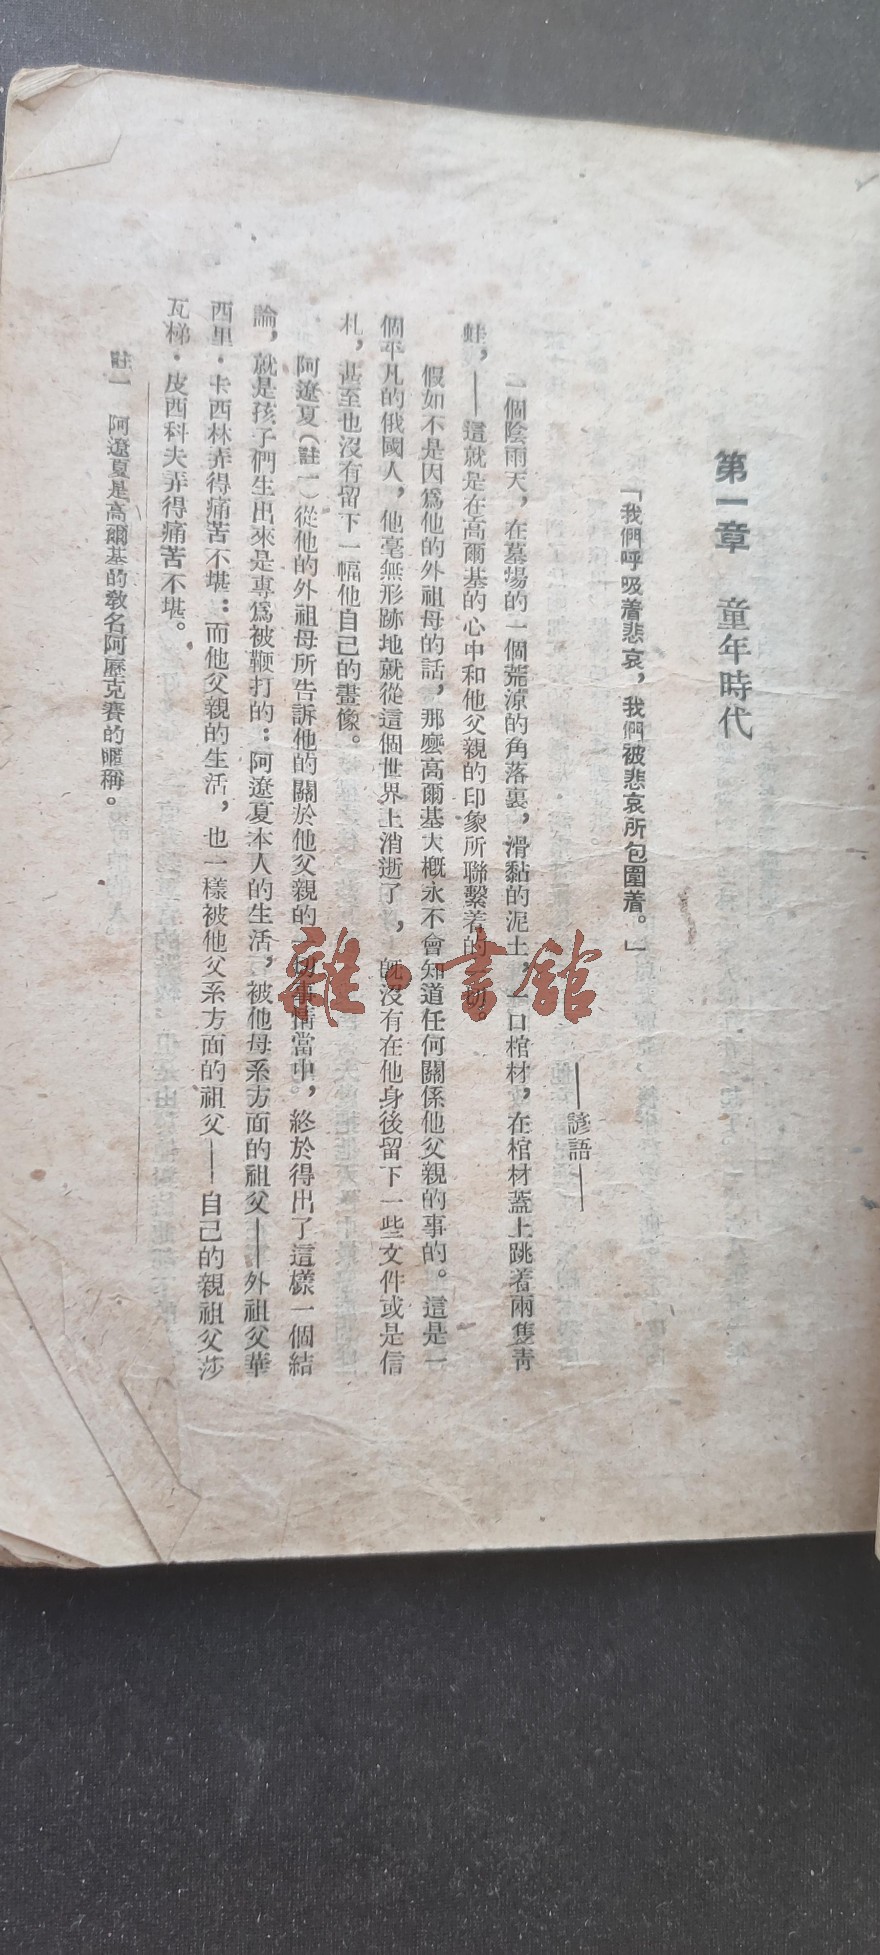 第一章　童年時代
「我們呼吸着悲哀，我們被悲哀所包圍着。」
——諺語——
一個陰雨天，在墓場的一個荒涼的角落裏，滑黏的泥土，一口棺材，在棺材蓋上跳着兩隻靑
蛙，——這就是在高爾基的心中和他父親的印象所聯繫着的一切。
假如不是因爲他的外祖母的話，那麽高爾基大槪永不會知道任何關係他父親的事的。這是一
個平凡的俄國人，他毫無形跡地就從這個世界上消逝了，旣沒有在他身後留下一些文件或是信
札，甚至也沒有留下一幅他自己的畫像。
阿遼夏（註一）從他的外祖母所告訴他的關於他父親的一切事情當中，終於得出了這樣一個結
論，就是孩子們生出來是專爲被鞭打的：阿遼夏本人的生活，被他母系方面的祖父——外祖父華
西里·卡西林弄得痛苦不堪：而他父親的生活，也一樣被他父系方面的祖父——自己的親祖父莎
瓦梯·皮西科夫弄得痛苦不堪。
註一　阿遼夏是高爾基的敎名阿歷克賽的暱稱。
雜·書館